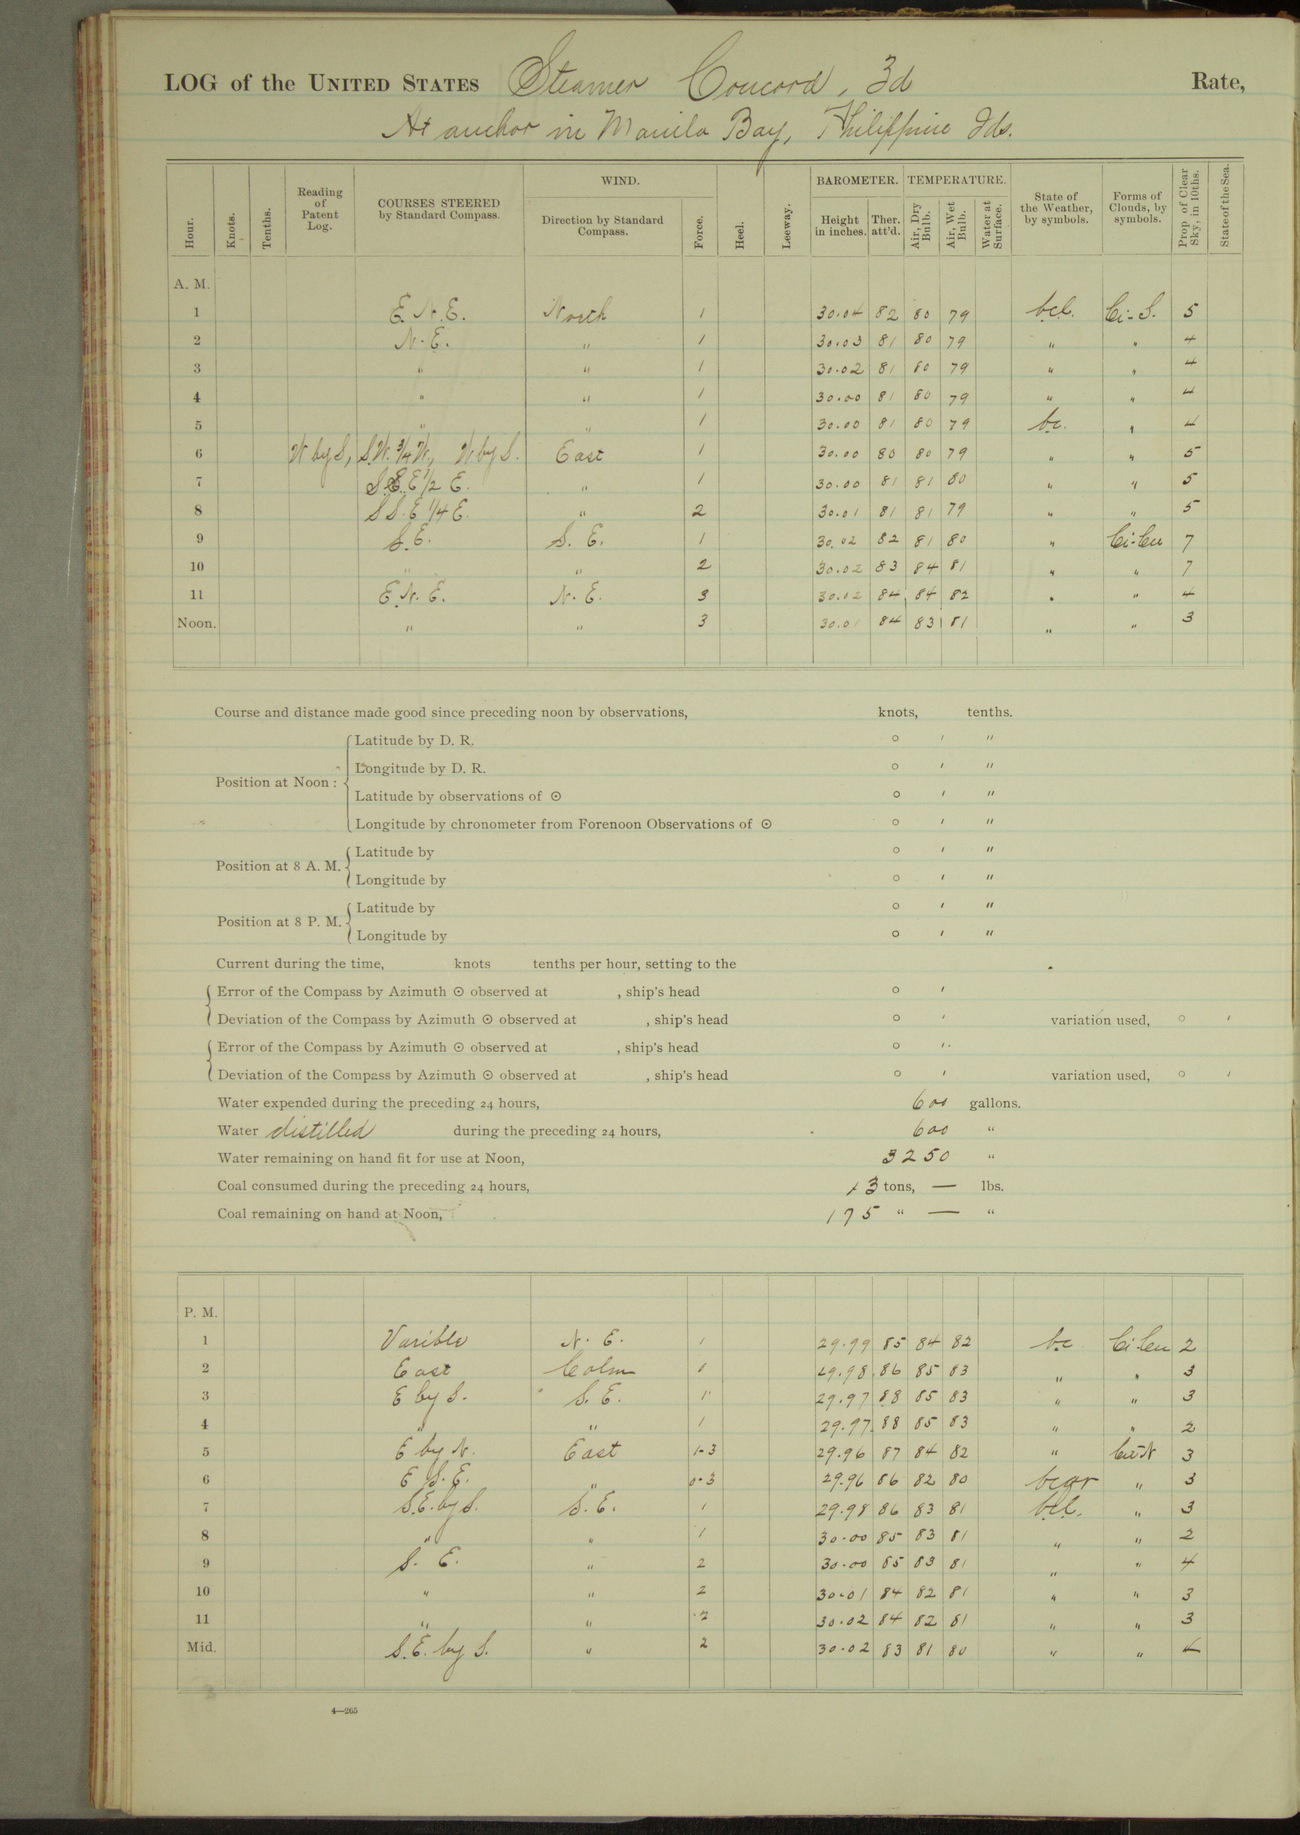 LOG of the UNITED STATES Steamer Concord, 3d Rate,
At anchor in Manila Bay, Philippine Ids.
Hour. Knots. Tenths. Reading of Patent Log. COURSES STEERED by Standard Compass. WIND. Direction by Standard Compass. Force. Heel. Leeway. BAROMETER. Height in inches. Ther. att'd. TEMPERATURE. Air, Dry Bulb. Air, Wet Bulb. Water at Surface. State of the Weather, by symbols. Forms of Clouds, by symbols. Prop. of Clear Sky, in 10ths. State of the Sea.
A. M.
1 E.N.E. North 1 30.04 82 80 79 bcl. Ci-S. 5
2 N.E. " 1 30.03 81 80 79 " " 4
3 " " 1 30.02 81 80 79 " " 4
4 " " 1 30.00 81 80 79 " " 4
5 " " 1 30.00 81 80 79 bc. " 4
6 W by S, S.W. 3/4 W, W. by S. East 1 30.00 80 80 79 " " 5
7 S.E. E 1/2 E. " 1 30.00 81 81 80 " " 5
8 S S.E 1/4 E. " 2 30.01 81 81 79 " " 5
9 S.E. S. E. 1 30.02 82 81 80 " Ci-Cu 7
10 " " 2 30.02 83 84 81 " " 7
11 E.N.E. N.E. 3 30.02 84 84 82 " " 4
Noon. " " 3 30.01 84 83 81 " " 3
Course and distance made good since preceding noon by observations, knots, tenths.
Position at Noon: Latitude by D. R. ° ′ ″
Longitude by D. R. ° ′ ″
Latitude by observations of ⊙ ° ′ ″
Longitude by chronometer from Forenoon Observations of ⊙ ° ′ ″
Position at 8 A. M. Latitude by ° ′ ″
Longitude by ° ′ ″
Position at 8 P. M. Latitude by ° ′ ″
Longitude by ° ′ ″
Current during the time, knots tenths per hour, setting to the .
Error of the Compass by Azimuth ⊙ observed at , ship's head ° ′
Deviation of the Compass by Azimuth ⊙ observed at , ship's head ° ′ variation used, ° ′
Error of the Compass by Azimuth ⊙ observed at , ship's head ° ′
Deviation of the Compass by Azimuth ⊙ observed at , ship's head ° ′ variation used, ° ′
Water expended during the preceding 24 hours, 600 gallons.
Water distilled during the preceding 24 hours, 600 "
Water remaining on hand fit for use at Noon, 3250 "
Coal consumed during the preceding 24 hours, 13 tons, — lbs.
Coal remaining on hand at Noon, 175 " — "
P. M.
1 Varible N. E. 1 29.99 85 84 82 bc Ci-Cu 2
2 East Calm 1 29.98 86 85 83 " " 3
3 E by S. S. E. 1 29.97 88 85 83 " " 3
4 " " 1 29.97 88 85 83 " " 2
5 E by N. East 1-3 29.96 87 84 82 " Cu-N 3
6 E S.E. " 0-3 29.96 86 82 80 bcqr " 3
7 S.E. by S. S. E. 1 29.98 86 83 81 bcl. " 3
8 " " 1 30.00 85 83 81 " " 2
9 S. E. " 2 30.00 85 83 81 " " 4
10 " " 2 30.01 84 82 81 " " 3
11 " " 2 30.02 84 82 81 " " 3
Mid. S.E. by S. " 2 30.02 83 81 80 " " 4
4—265